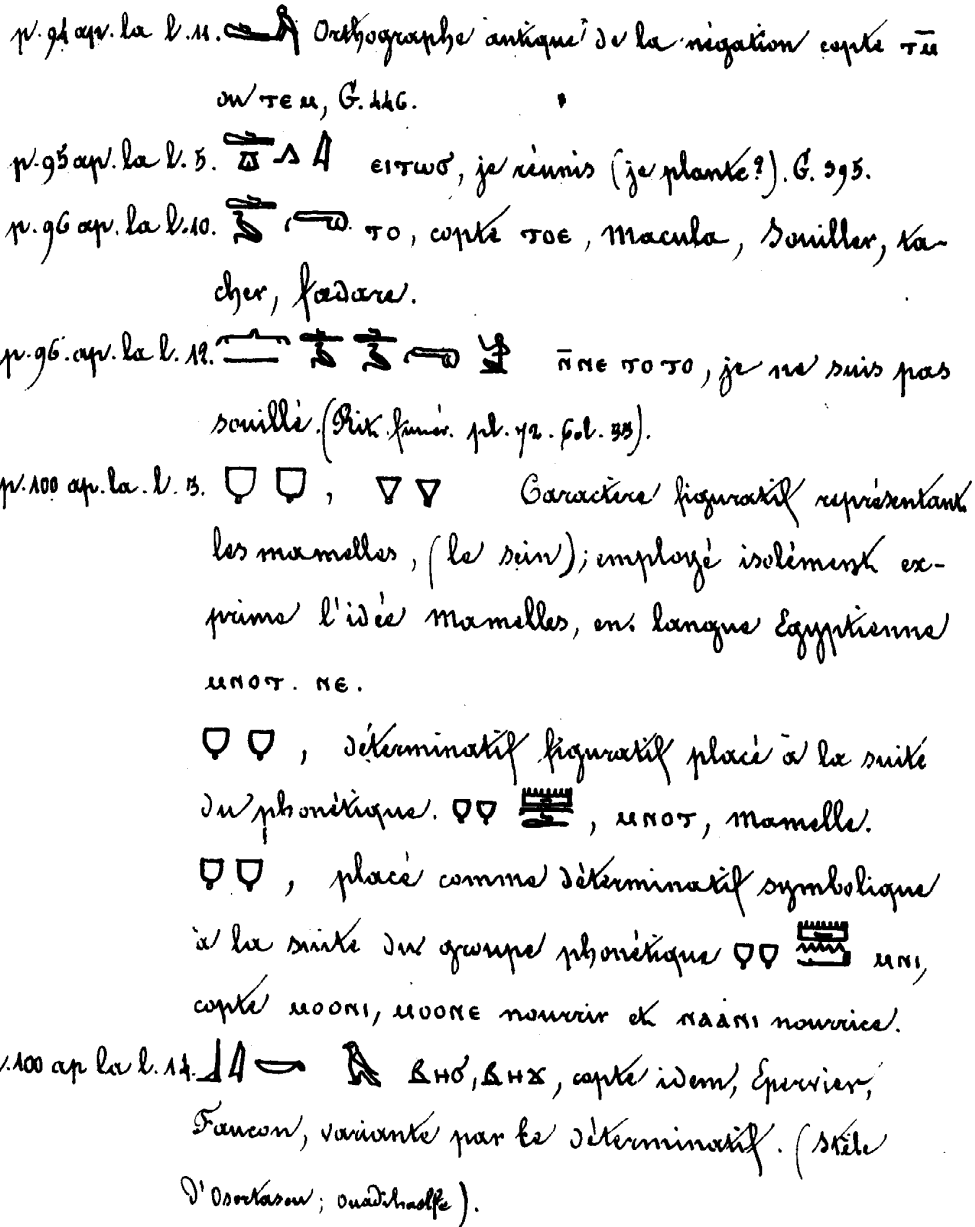 p. 94 ap. la l. 11. Orthographe antique de la négation copte ⲧⲙ̄
ou ⲧⲉⲙ, G. 446.
p. 95 ap. la l. 5. ⲉⲓⲧⲱϭ, je réunis (je plante?). G. 395.
p. 96 ap. la l. 10. ⲧⲟ, copte ⲧⲟⲉ, Macula, Souiller, ta-
cher, fœdare.
p. 96. ap. la l. 12. ⲛ̄ⲛⲉ ⲧⲟⲧⲟ, je ne suis pas
souillé. (Rit. funér. pl. 72. Col. 35).
p. 100 ap. la. l. 3. , Caractère figuratif représentant
les mamelles, (le sein); employé isolément ex-
prime l'idée Mamelles, en langue Égyptienne
ⲙⲛⲟⲧ. ⲛⲉ.
, déterminatif figuratif placé à la suite
du phonétique. , ⲙⲛⲟⲧ, mamelle.
, placé comme déterminatif symbolique
à la suite du groupe phonétique ⲙⲛⲓ,
copte ⲙⲟⲟⲛⲓ, ⲙⲟⲟⲛⲉ nourrir et ⲙⲁⲁⲛⲓ nourrice.
p. 100 ap la l. 14. ⲃⲏϭ, ⲃⲏϫ, copte idem, Épervier,
Faucon, variante par le déterminatif. (Stèle
d'Osortasen; ouadihalfe).